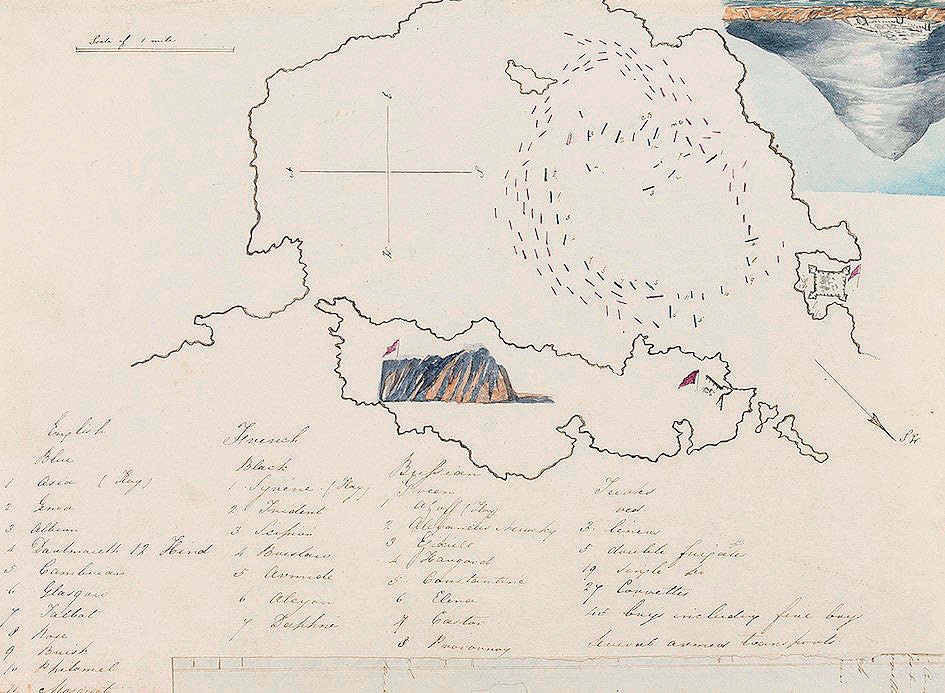 Scale of 1 mile
SW
English
Blue
1 Asia (Flag)
2 Genoa
3 Albion
4 Dartmouth 12 Hind
5 Cambrian
6 Glasgow
7 Talbot
8 Rose
9 Brisk
10 Philomel
11 Mosquito
French
Black
1 Syrene (Flag)
2 Trident
3 Scipion
4 Breslaw
5 Armide
6 Alcyon
7 Daphne
Russian
Green
1 Azoff (Flag)
2 Alexander Newsky
3
4 Hangood
5 Constantine
6 Elena
7 Castor
8 Provornoy
Turks
red
3 liners
5 double frigate
19 single do
27 Corvettes
45 brigs including fire brigs
several armed transports